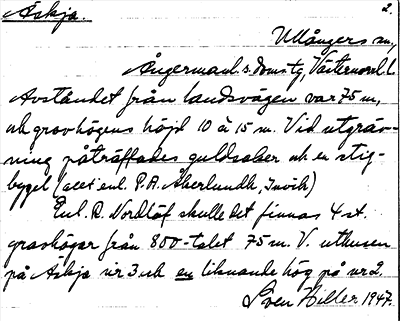 Äskja. 2.
Ullångers sn,
Ångermanl. s. domstg, Västernorrl. l.
Avståndet från landsvägen var 75 m,
och gravhögens höjd 10 à 15 m. Vid utgräv-
ning påträffades guldsaker och en stig-
bygel (allt enl. P.A. Åkerlundh, Invik)
Enl. R. Nordlöf skulle det finnas 4 st.
gravhögar från 800-talet 75 m. V. uthusen
på Äskja nr 3 och en liknande hög på nr 2.
Sven Hiller 1947.